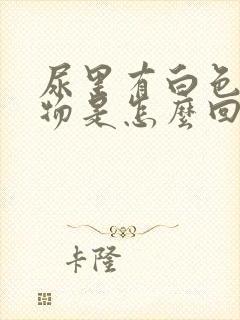 尿里有白色
物是怎麼回
卡隆